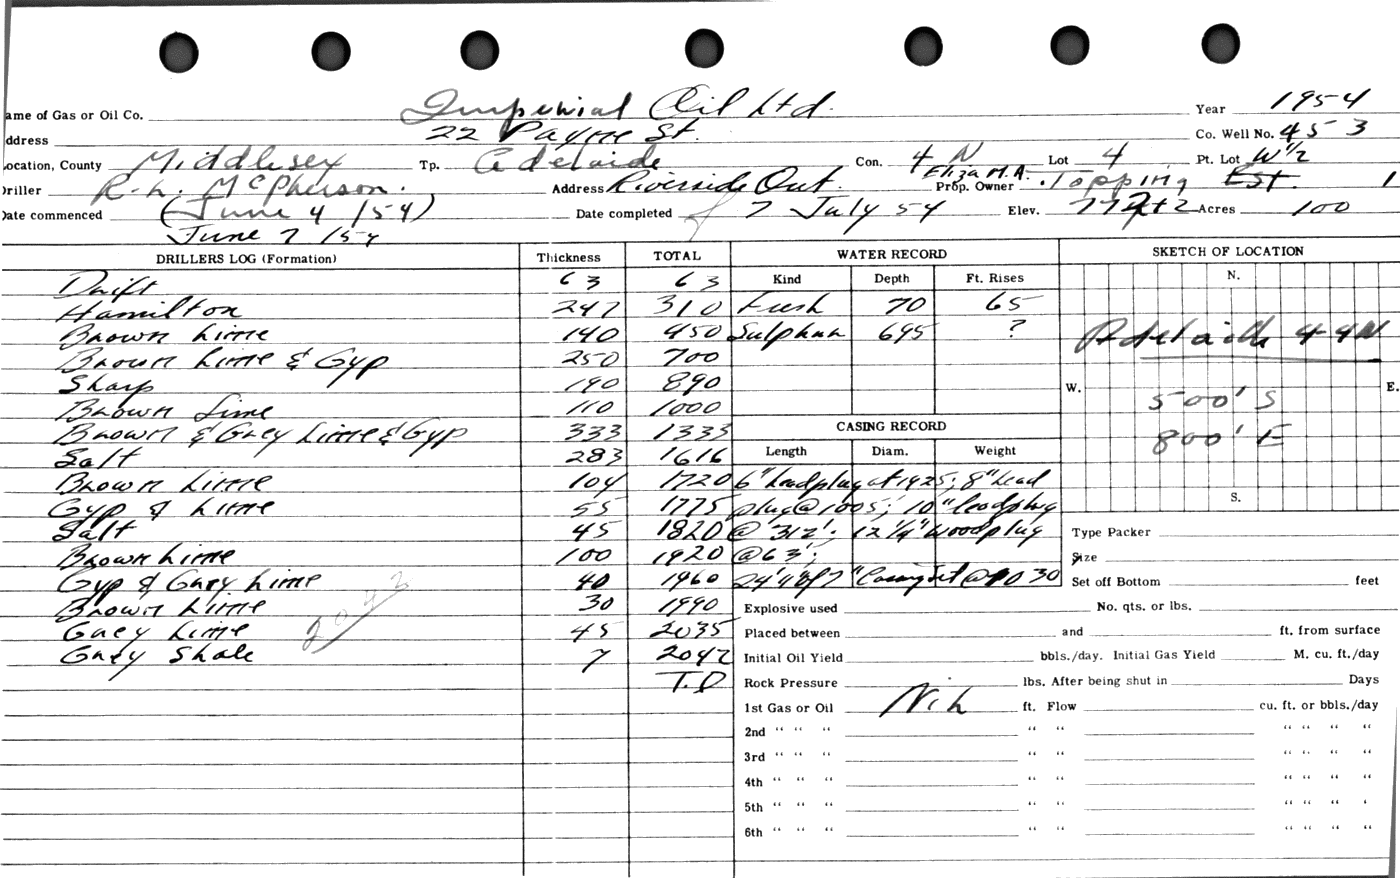 ame of Gas or Oil Co. Imperial Oil Ltd. Year 1954
ddress 22 Payne St. Co. Well No. 453
ocation, County Middlesex Tp. Adelaide Con. 4 N Lot 4 Pt. Lot W 1/2
Driller R. L. McPherson. Address Riverside Ont. Prop. Owner Eliza M.A. Topping Est. 1
Date commenced (June 4 /54) Date completed 7 July 54 Elev. Acres 100
June 7 /54
DRILLERS LOG (Formation) Thickness TOTAL WATER RECORD SKETCH OF LOCATION
Kind Depth Ft. Rises N.
Drift 63 63
Hamilton 247 310 Fresh 70 65
Brown Lime 140 450 Sulphur 695 ? Adelaide 4-4N
Brown Lime & Gyp 250 700
Sharp 190 890 W. E.
Brown Lime 110 1000 500' S
Brown & Grey Lime & Gyp 333 1333 CASING RECORD 800' E
Salt 283 1616 Length Diam. Weight
Brown Lime 104 1720 6" leadplug at 1925; 8" lead
Gyp & Lime 55 1775 plug @ 1005'; 10" leadplug S.
Salt 45 1820 @ 312'; 12 1/4" woodplug Type Packer
Brown Lime 100 1920 @ 63'; Size
Gyp & Grey Lime 40 1960 24' 11" of 7" Casing set @ 30 Set off Bottom feet
Brown Lime 30 1990 Explosive used No. qts. or lbs.
2042
Grey Lime 45 2035 Placed between and ft. from surface
Grey Shale 7 2042 Initial Oil Yield bbls./day. Initial Gas Yield M. cu. ft./day
T.D Rock Pressure lbs. After being shut in Days
1st Gas or Oil Nil ft. Flow cu. ft. or bbls./day
2nd " " " " " " " " "
3rd " " " " " " " " "
4th " " " " " " " " "
5th " " " " " " " " '
6th " " " " " " " " "